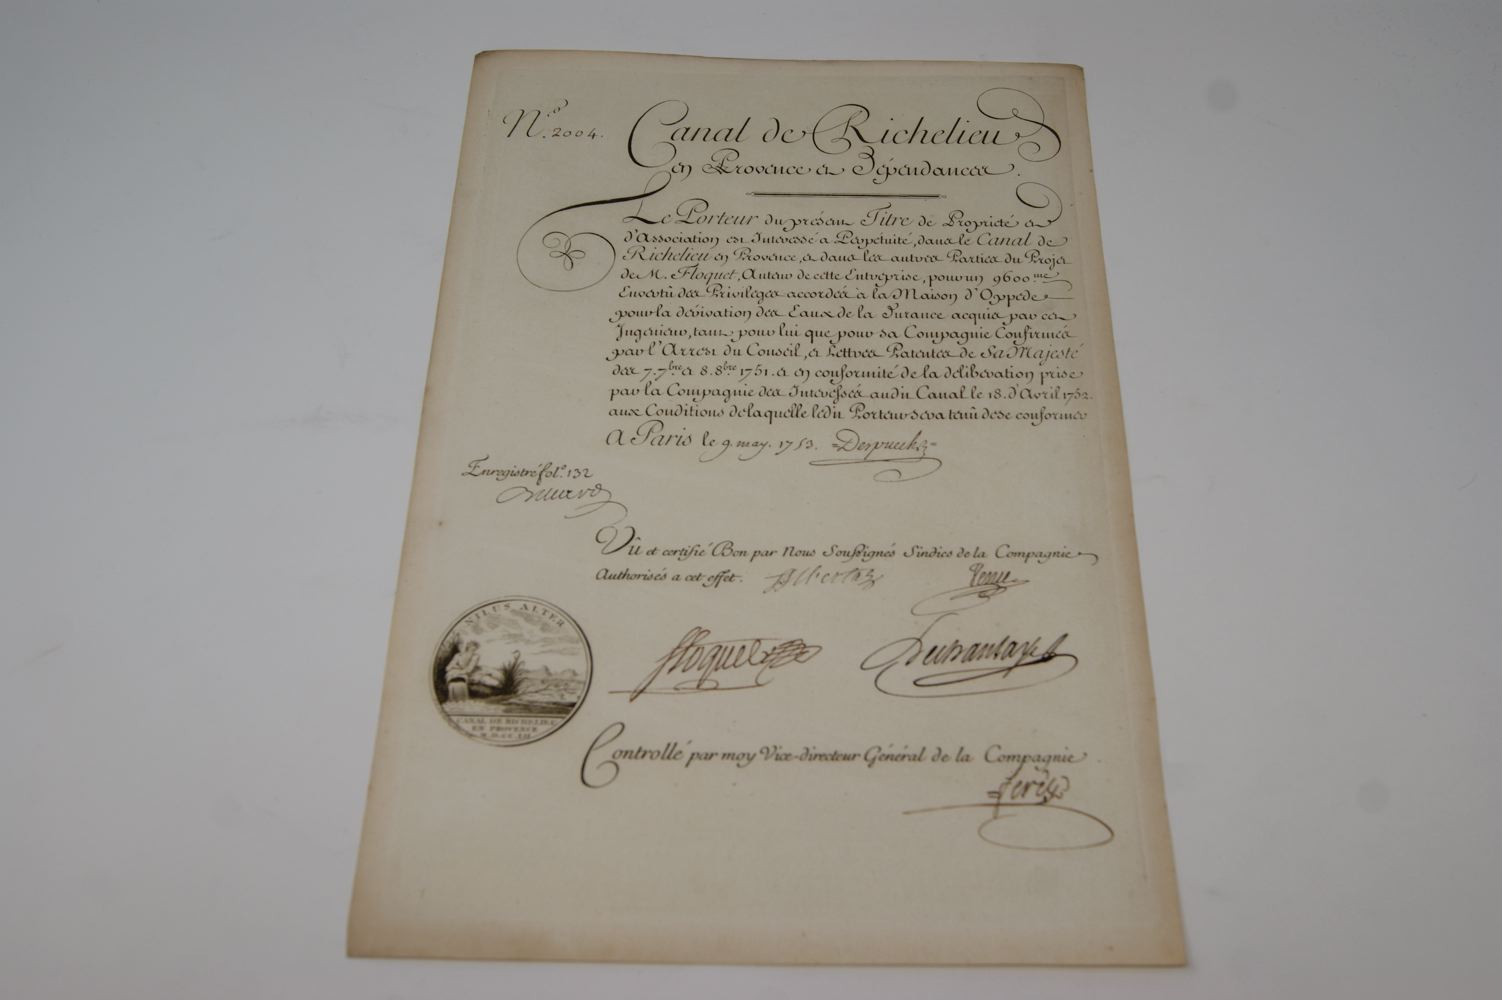 N.º 2004.
Canal de Richelieu
en Provence et Dépendances.
Le Porteur du présent Titre de Proprieté et
d'Association est Interessé a Perpetuité, dans le Canal de
Richelieu en Provence, et dans les autres Parties du Projet
de M. Floquet, Auteur de cette Entreprise, pour un 9600.me
En vertû des Privileges accordés à la Maison d'Oppede
pour la dérivation des Eaux de la Durance acquis par cet
Ingenieur, tant pour lui que pour sa Compagnie Confirmés
par l'Arrest du Conseil, et Lettres Patentes de Sa Majesté
des 7. 7bre et 8. 8bre 1751. et en conformité de la déliberation prise
par la Compagnie des Interessés audit Canal le 18. d'Avril 1752.
aux Conditions de laquelle ledit Porteur sera tenû de se conformer
A Paris le 9. may. 1753.
Enregistré fol.º 132
Vû et certifié Bon par Nous Soussignés Sindics de la Compagnie
Authorisés a cet effet.
Floquet
NILUS ALTER
CANAL DE RICHELIEU
EN PROVENCE
M.DCC.LII.
Controllé par moy Vice-directeur Général de la Compagnie